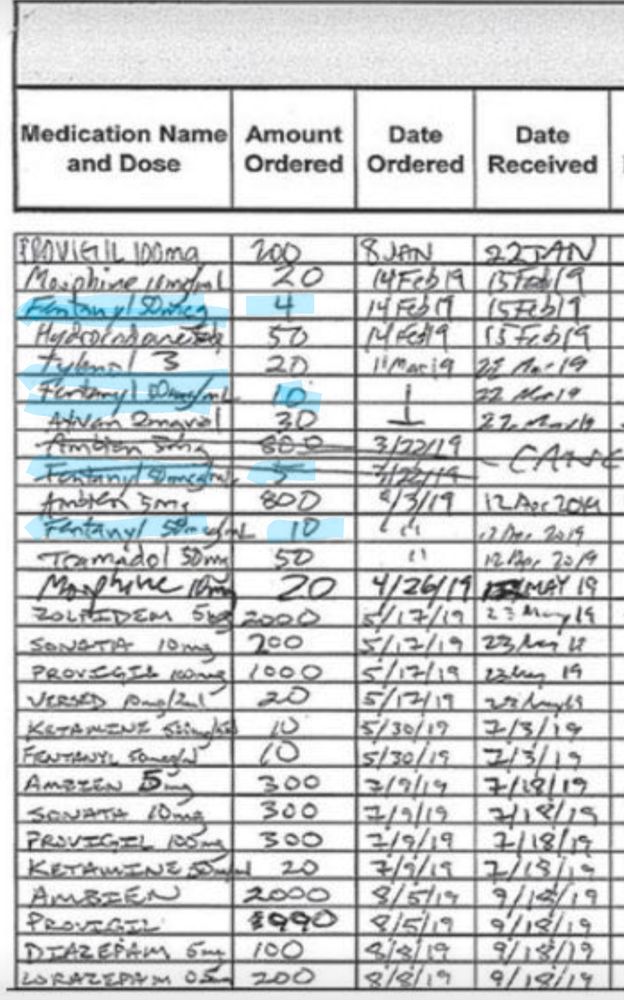 Medication Name and Dose Amount Ordered Date Ordered Date Received
PROVIGIL 100mg 200 8 JAN 22 JAN
Morphine 10mg/mL 20 14 Feb 19 15 Feb 19
Fentanyl 50mcg 4 14 Feb 19 15 Feb 19
50 14 Feb 19 15 Feb 19
Tylenol 3 20 11 Mar 19 22 Mar 19
Fentanyl 10 22 Mar 19
Ativan 2mg 30 22 Mar 19
Ambien 5mg 600 3/22/19
Fentanyl 5 3/22/19 CANC
Ambien 5mg 800 4/3/19 12 Apr 2019
Fentanyl 50mcg/mL 10 " 12 Apr 2019
Tramadol 50mg 50 " 12 Apr 2019
Morphine 10mg 20 4/26/19 MAY 19
ZOLPIDEM 5mg 2000 5/17/19 23 May 19
SONATA 10mg 200 5/17/19 23 May 19
PROVIGIL 100mg 1000 5/17/19 23 May 19
VERSED 10mg/2ml 20 5/17/19 23 May 19
KETAMINE 10 5/30/19 7/3/19
FENTANYL 50mcg/ml 10 5/30/19 7/3/19
AMBIEN 5mg 300 7/9/19 7/18/19
SONATA 10mg 300 7/9/19 7/18/19
PROVIGIL 100mg 300 7/9/19 7/18/19
KETAMINE 20 7/9/19 7/18/19
AMBIEN 2000 8/5/19 9/18/19
PROVIGIL 8/5/19 9/18/19
DIAZEPAM 5mg 100 8/8/19 9/18/19
LORAZEPAM 0.5mg 200 8/8/19 9/18/19